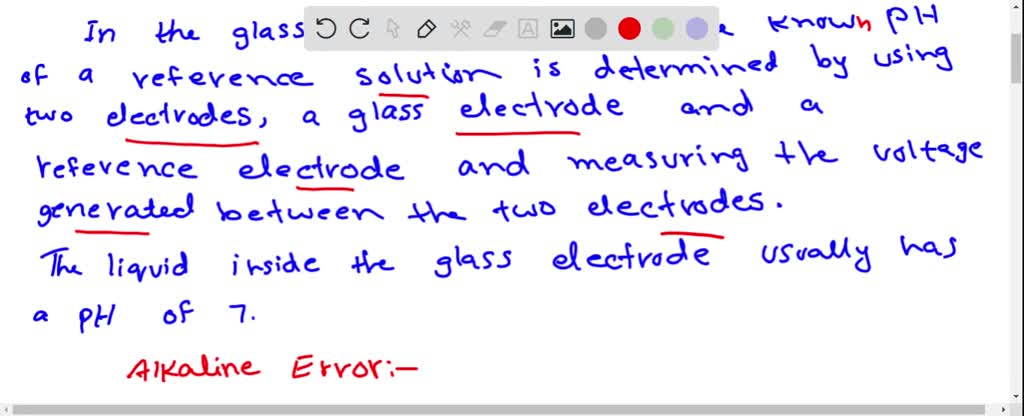 In the glass known pH
of a reference solution is determined by using
two electrodes, a glass electrode and a
reference electrode and measuring the voltage
generated between the two electrodes.
The liquid inside the glass electrode usually has
a pH of 7.
Alkaline Error:-